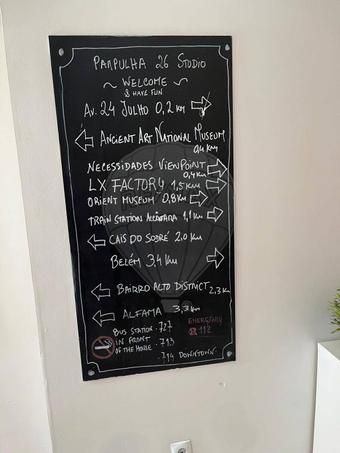 PAMPULHA 26 STUDIO
WELCOME
& HAVE FUN
AV. 24 JULHO 0,2 KM
ANCIENT ART NATIONAL MUSEUM
0,4 KM
NECESSIDADES VIEWPOINT
0,4 KM
LX FACTORY 1,5 KM
ORIENT MUSEUM 0,8 KM
TRAIN STATION ALCÂNTARA 1,1 KM
CAIS DO SODRÉ 2.0 KM
BELÉM 3,4 KM
BAIRRO ALTO DISTRICT 2,3 KM
ALFAMA 3,3 KM
BUS STATION . 727
IN FRONT . 713
OF THE HOUSE . 714 DOWNTOWN
EMERGENCY
112